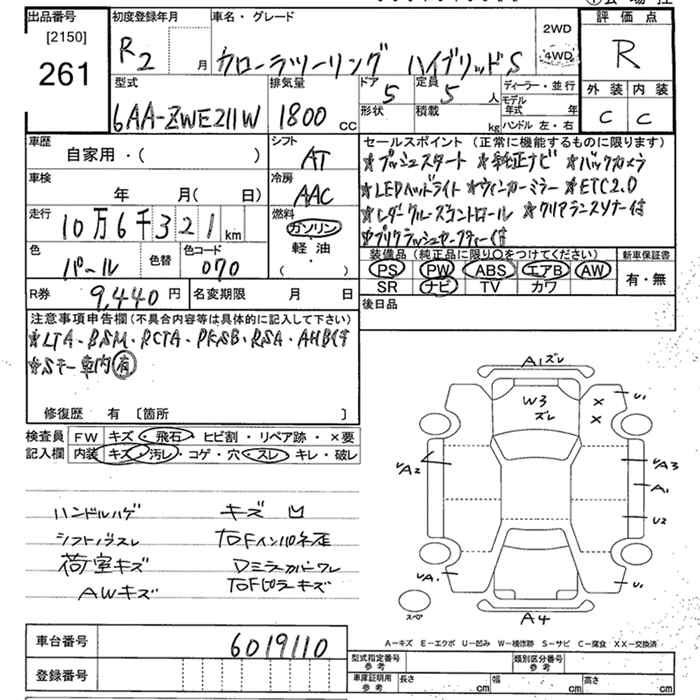 出品番号 [2150] 261
初度登録年月 R2 月
車名・グレード カローラツーリング ハイブリッドS
2WD 4WD
評価点 R
外装 内装
C C
型式 6AA-ZWE211W
排気量 1800 cc
ドア 5 定員 5 人
形状 積載 kg
ディーラー・並行
モデル年式 年
ハンドル 左・右
車歴 自家用・( )
シフト AT
車検 年 月( 日)
冷房 AAC
走行 10万6千321 km
燃料 ガソリン 軽油 ・( )
色 パール 色替 色コード 070
セールスポイント (正常に機能するものに限ります)
★プッシュスタート ★純正ナビ ★バックカメラ
★LEDヘッドライト ★ウィンカーミラー ★ETC2.0
★レーダークルーズコントロール ★クリアランスソナー付
★プリクラッシュセーフティー付
装備品 (純正品に限り○をつけてください) 新車保証書
PS PW ABS エアB AW
SR ナビ TV カワ
有・無
R券 9,440 円 名変期限 月 日
後日品
注意事項申告欄(不具合内容等は具体的に記入して下さい)
★LTA・BSM・RCTA・PKSB・RSA・AHB付
★Sキー車内有
修復歴 有 〔箇所 〕
検査員記入欄 FW キズ・飛石・ヒビ割・リペア跡・×要
内装 キズ・汚レ・コゲ・穴・スレ・キレ・破レ
ハンドルハゲ キズ 凹
シフトノブスレ 右Fインパネ歪
荷室キズ Dミラーカバーワレ
AWキズ 右Fピラーキズ
A1ズレ
W3 ズレ
× ×
U1
A2
A3
A1
U2
A1
U1
スペア
A4
A-キズ E-エクボ U-凹み W-補修跡 S-サビ C-腐食 XX-交換済
車台番号 6019110
登録番号
型式指定番号 参考 類別区分番号 参考
車庫証明用 参考 長さ cm 幅 cm 高さ cm